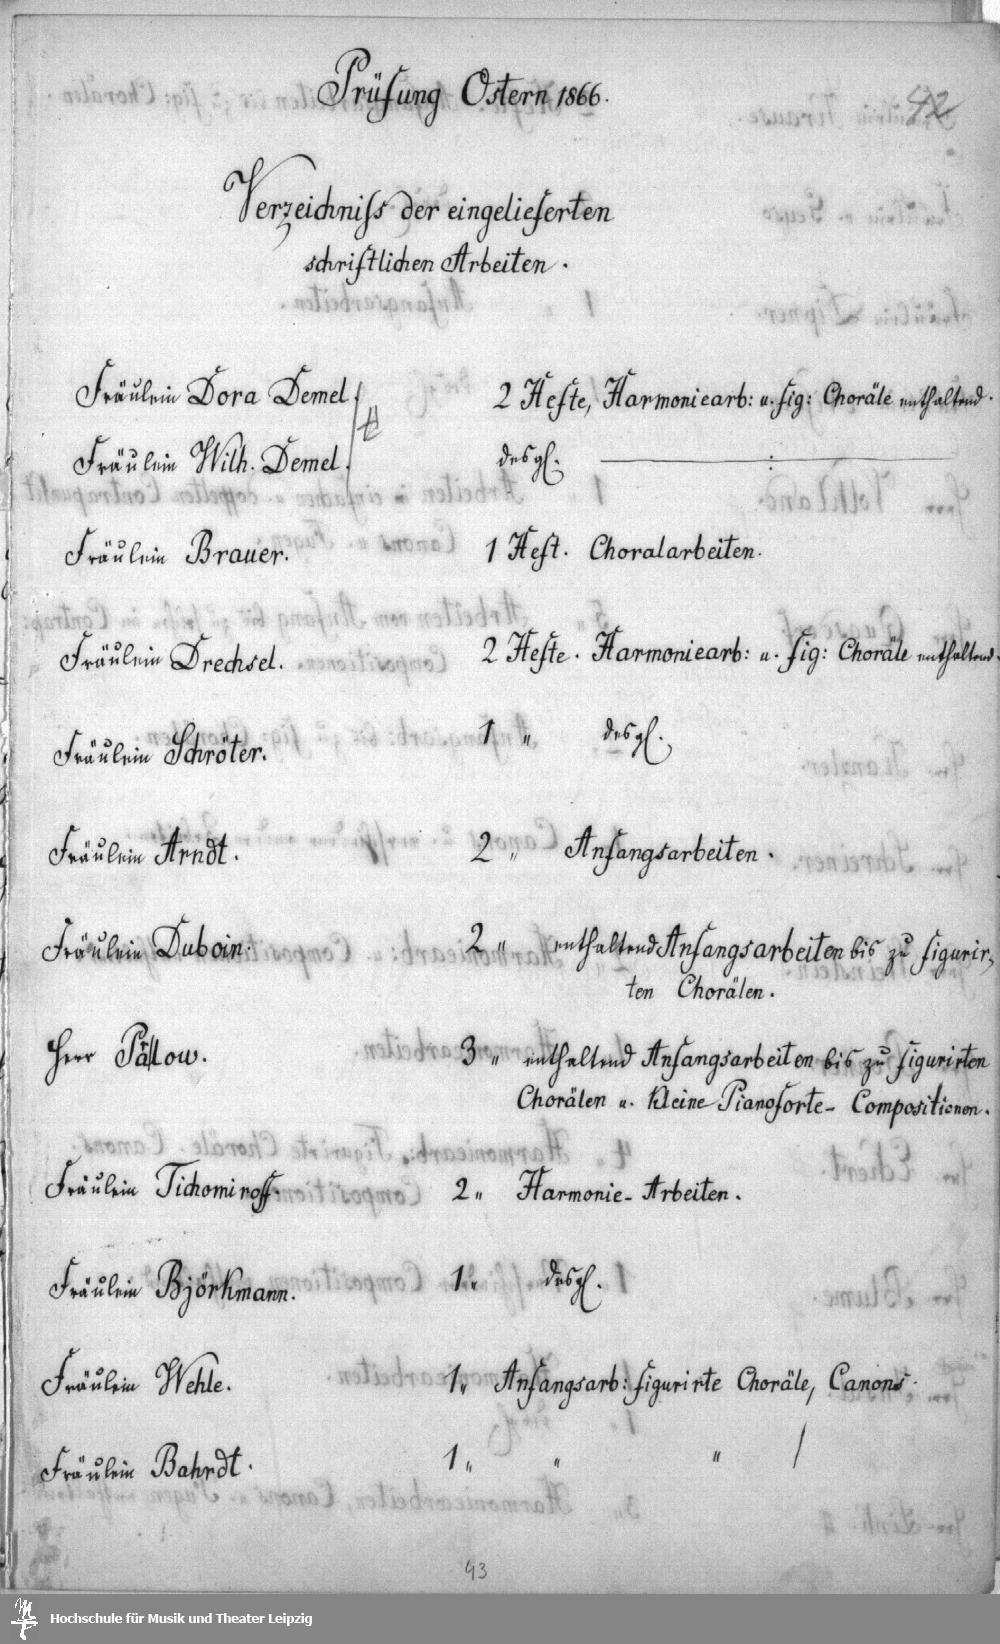 Prüfung Ostern 1866.
42
Verzeichniss der eingelieferten
schriftlichen Arbeiten.
Fräulein Dora Demel. 2 Hefte, Harmoniearb: u. fig: Choräle enthaltend.
Fräulein Wilh. Demel. desgl. :
Fräulein Brauer. 1 Heft. Choralarbeiten.
Fräulein Drechsel. 2 Hefte. Harmoniearb: u. fig: Choräle enthaltend.
Fräulein Schröter. 1 " desgl.
Fräulein Arndt. 2 " Anfangsarbeiten.
Fräulein Duboin. 2 " enthaltend Anfangsarbeiten bis zu figurir,
ten Chorälen.
Herr 3 " enthaltend Anfangsarbeiten bis zu figurirten
Chorälen u. kleine Pianoforte- Compositionen.
Fräulein Tichomiroff. 2 " Harmonie- Arbeiten.
Fräulein Björkmann. 1 " desgl.
Fräulein Wehle. 1 " Anfangsarb: figurirte Choräle, Canons.
Fräulein Bahrdt. 1 " " " /
43
Hochschule für Musik und Theater Leipzig